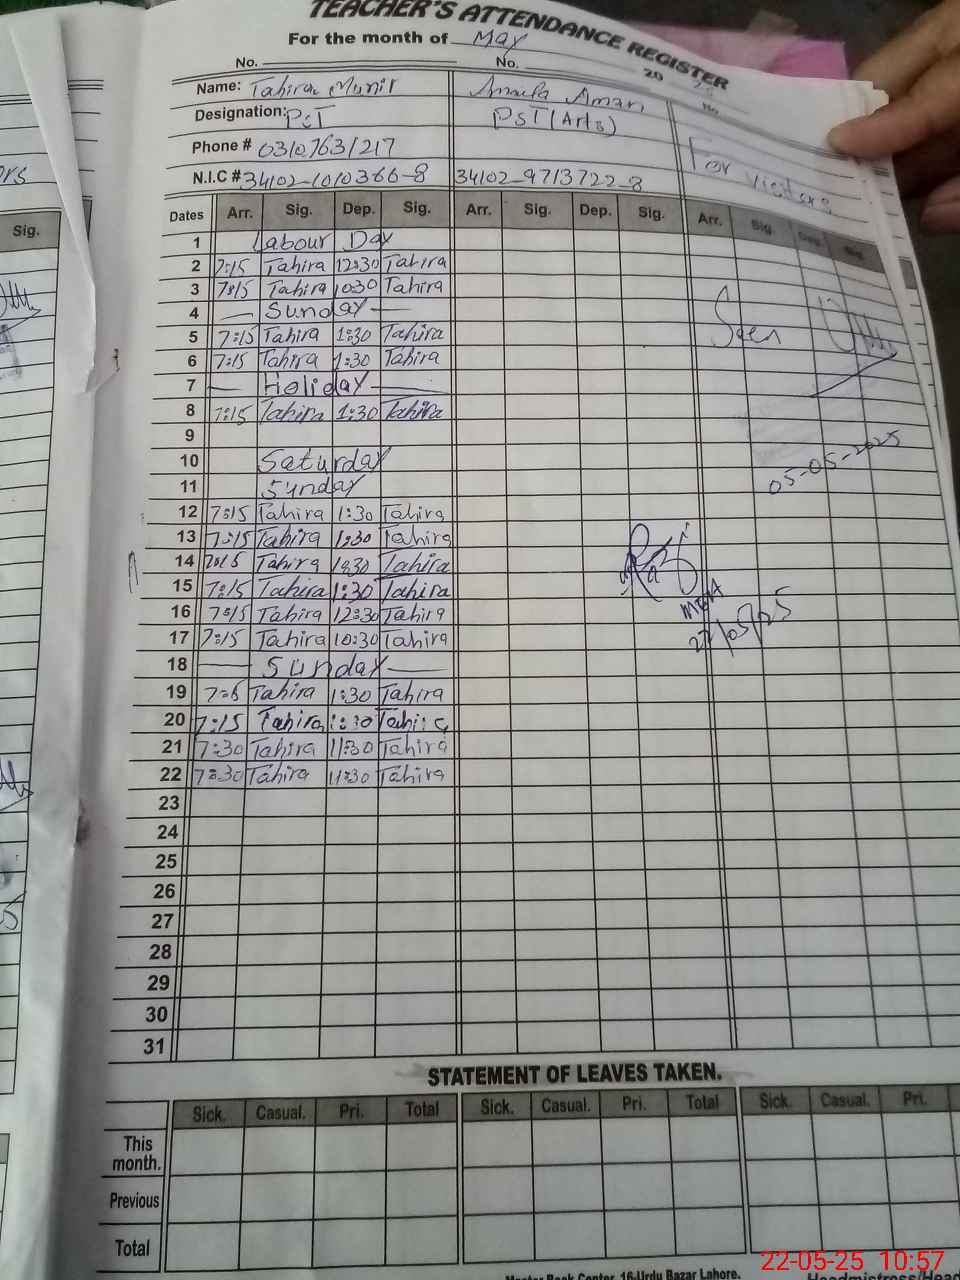 TEACHER'S ATTENDANCE REGISTER
For the month of May 20 25
No. No. No
Name: Tahira Munir Aman
Designation: PST PST (Arts)
Phone # 03107631217 For visitors
N.I.C # 34102-1010366-8 34102-9713722-8
Dates Arr. Sig. Dep. Sig. Arr. Sig. Dep. Sig. Arr. Sig. Dep. Sig.
1 Labour Day
2 7:15 Tahira 12:30 Tahira
3 7:15 Tahira 10:30 Tahira
4 — Sunday —
5 7:15 Tahira 1:30 Tahira Seen
6 7:15 Tahira 1:30 Tahira
7 — Holiday —
8 7:15 Tahira 1:30 Tahira
9
10 Saturday
11 Sunday 05-05-2025
12 7:15 Tahira 1:30 Tahira
13 7:15 Tahira 1:30 Tahira
14 7:15 Tahira 1:30 Tahira
15 7:15 Tahira 1:30 Tahira
16 7:15 Tahira 12:30 Tahira MEA
17 7:15 Tahira 10:30 Tahira 22/05/25
18 — Sunday —
19 7:15 Tahira 1:30 Tahira
20 7:15 Tahira 1:30 Tahira
21 7:30 Tahira 11:30 Tahira
22 7:30 Tahira 11:30 Tahira
23
24
25
26
27
28
29
30
31
STATEMENT OF LEAVES TAKEN.
Sick. Casual. Pri. Total Sick. Casual. Pri. Total Sick. Casual. Pri.
This month.
Previous
Total
22-05-25 10:57
Master Book Center, 16-Urdu Bazar Lahore. Headmistress/Head
rs
Sig.